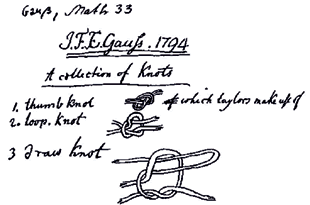 Gauß, Math 33
J.F.E. Gauß. 1794
A collection of Knots
1. thumb knot of which taylors make up of
2. loop. knot
3 draw knot